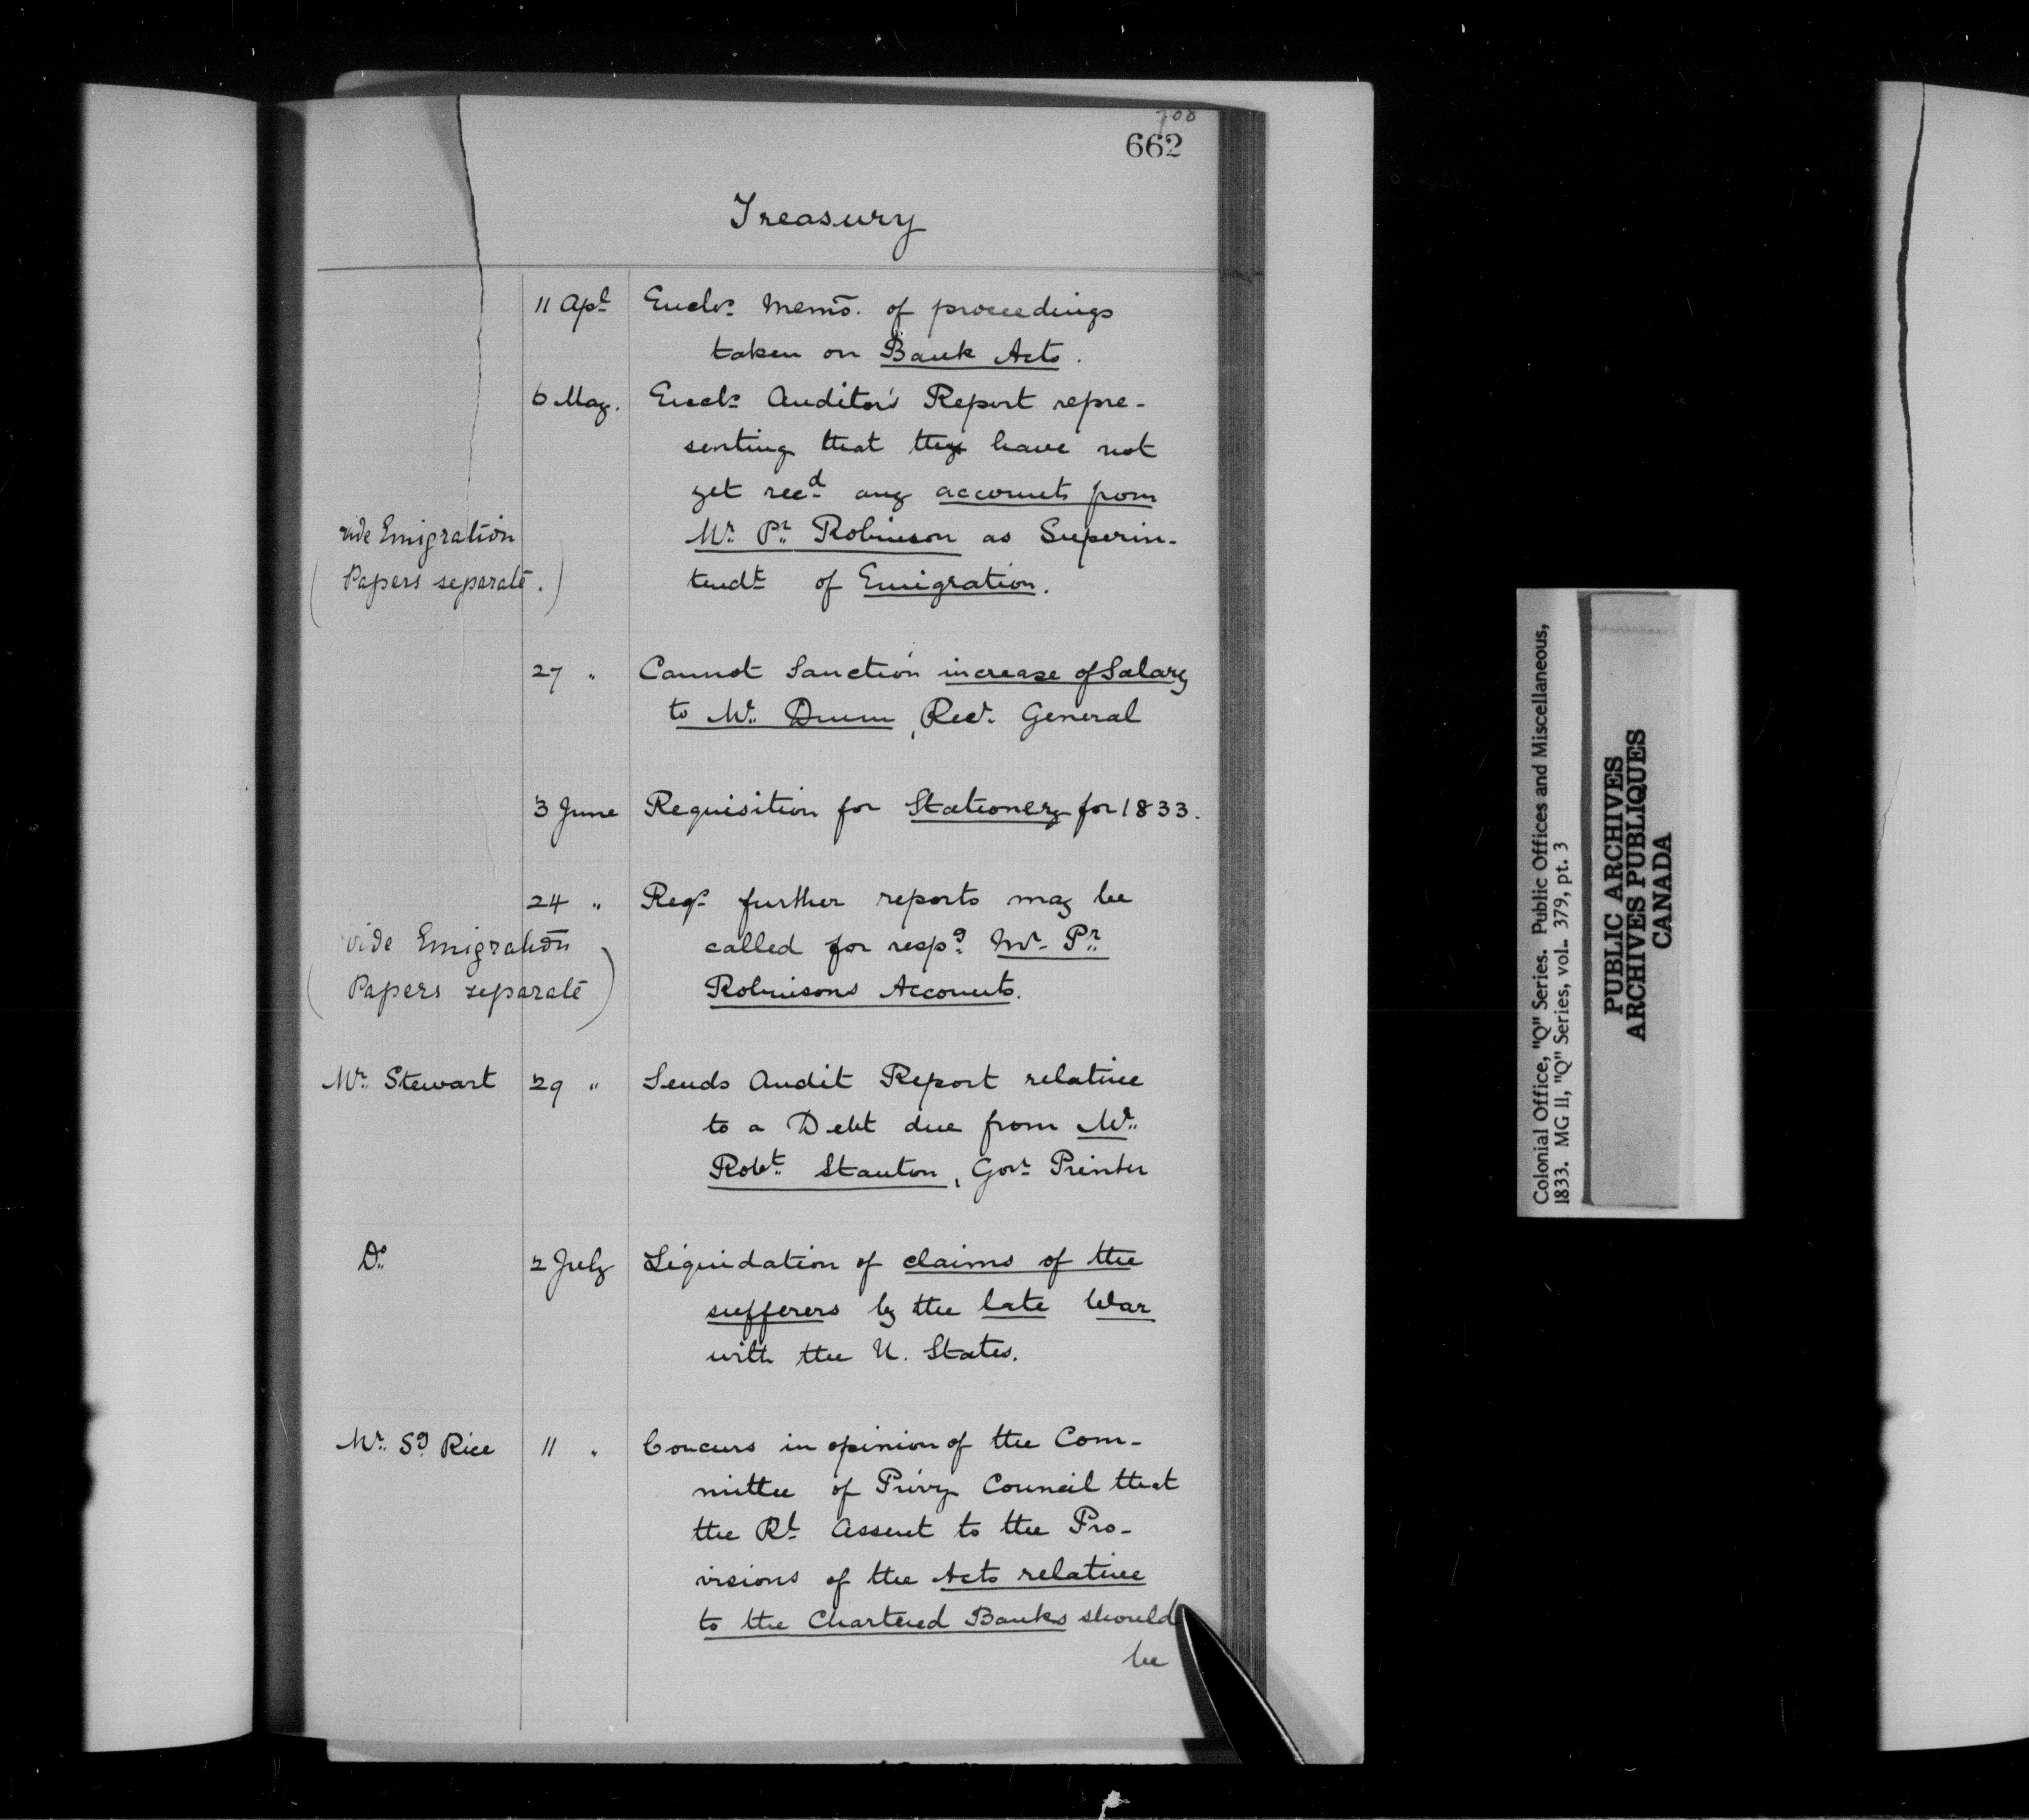 700
662
Treasury
11 Apl Enclos. Memo. of proceedings
taken on Bank Acts.
6 May. Encls Auditor's Report repre-
senting that they have not
yet recd any accounts from
vide Emigration Mr. Pr. Robinson as Superin-
(Papers separate.) tendt of Emigration.
27 " Cannot Sanction increase of Salary
to Mr. Dunn, Recr. General
3 June Requisition for Stationery for 1833.
24 " Reqs further reports may be
vide Emigration called for respg Mr. Pr.
(Papers separate) Robinsons Accounts.
Mr. Stewart 29 " Sends Audit Report relative
to a Debt due from Mr.
Robt. Stanton, Govt Printer
Do. 2 July Liquidation of claims of the
sufferers by the late War
with the U. States.
Mr. Sg. Rice 11 " Concurs in opinion of the Com-
mittee of Privy Council that
the Rl. Assent to the Pro-
visions of the Acts relative
to the Chartered Banks should
be
Colonial Office, "Q" Series. Public Offices and Miscellaneous,
1833. MG 11, "Q" Series, vol. 379, pt. 3
PUBLIC ARCHIVES
ARCHIVES PUBLIQUES
CANADA